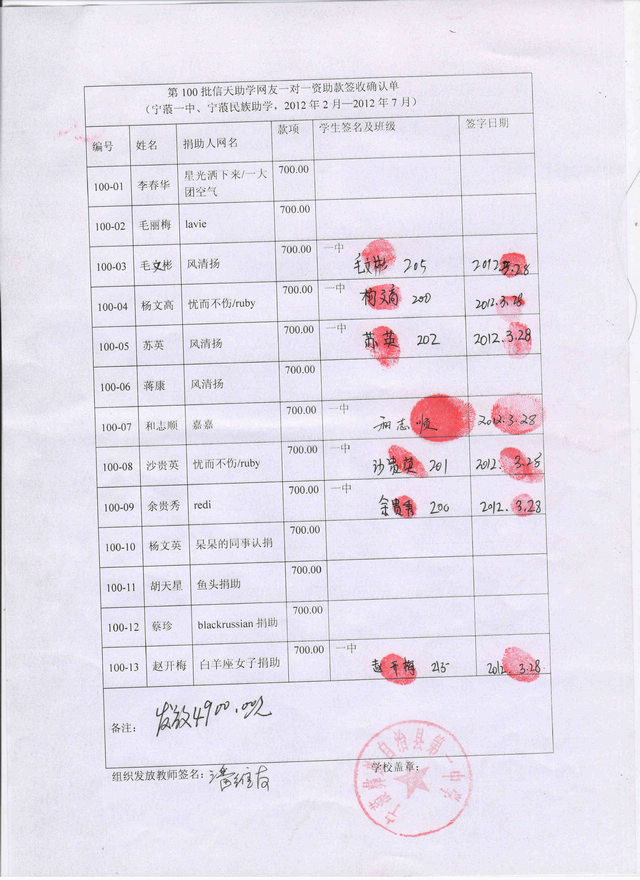 第100批信天助学网友一对一资助款签收确认单
（宁蒗一中、宁蒗民族助学，2012年2月—2012年7月）
编号 姓名 捐助人网名 款项 学生签名及班级 签字日期
100-01 李春华 星光洒下来/一大团空气 700.00
100-02 毛丽梅 lavie 700.00
100-03 毛文彬 风清扬 700.00 一中 毛文彬 205 2012.3.28
100-04 杨文高 忧而不伤/ruby 700.00 一中 杨文高 200 2012.3.28
100-05 苏英 风清扬 700.00 一中 苏英 202 2012.3.28
100-06 蒋康 风清扬 700.00
100-07 和志顺 嘉嘉 700.00 一中 和志顺 2012.3.28
100-08 沙贵英 忧而不伤/ruby 700.00 一中 沙贵英 201 2012.3.28
100-09 余贵秀 redi 700.00 一中 余贵秀 200 2012.3.28
100-10 杨文英 呆呆的同事认捐 700.00
100-11 胡天星 鱼头捐助 700.00
100-12 蔡珍 blackrussian捐助 700.00
100-13 赵开梅 白羊座女子捐助 700.00 一中 赵开梅 2012.3.28
备注： 发放4900.00元
组织发放教师签名： 学校盖章：
自治县第一中学